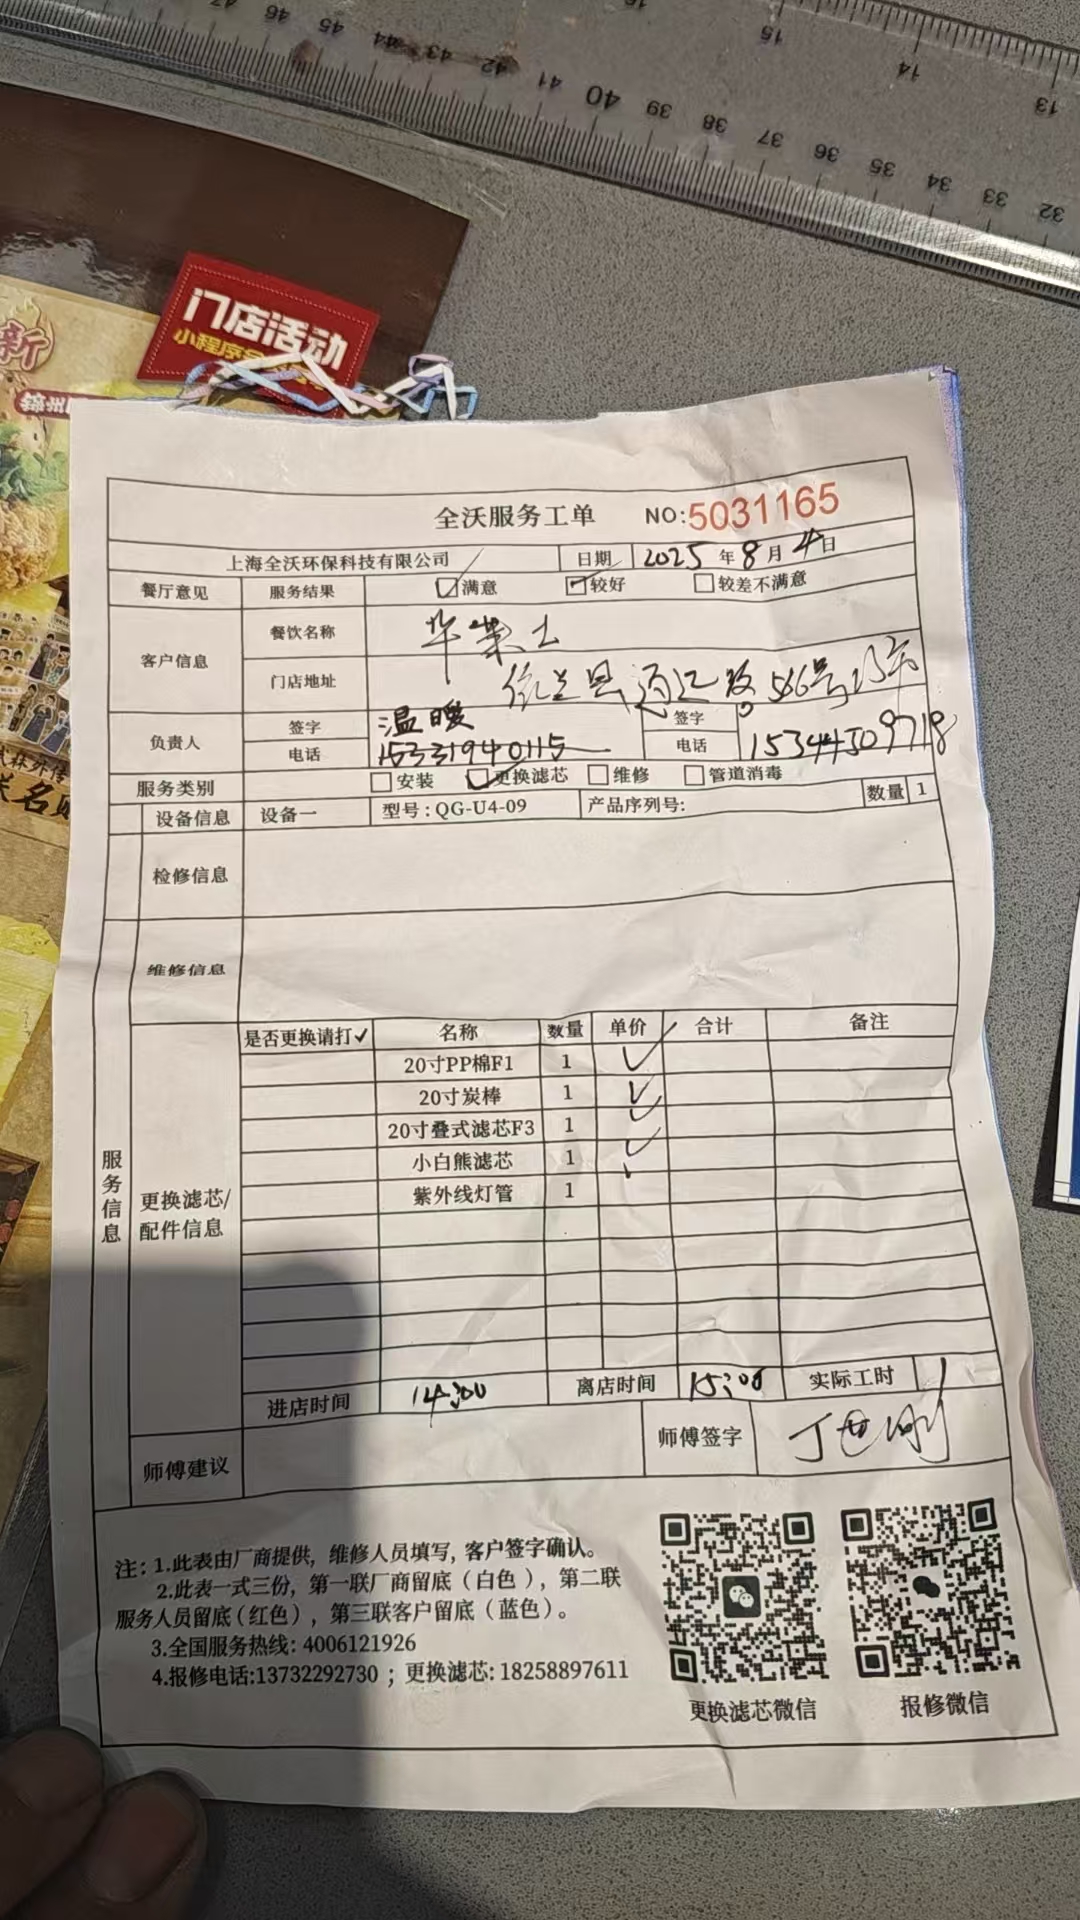 47 46 45 44 43 42 41 40 39 38 37 36 35 34 33 32
16 15 14 13
新
门店活动
小程序
锦州
全沃服务工单 NO:5031165
上海全沃环保科技有限公司 日期 2025年8月4日
餐厅意见 服务结果 满意 较好 较差不满意
客户信息 餐饮名称 华莱士
门店地址 依兰县通江路566号
负责人 签字 温暖 签字
电话 15331940115 电话 15344509718
服务类别 安装 更换滤芯 维修 管道消毒
设备信息 设备一 型号:QG-U4-09 产品序列号: 数量 1
检修信息
维修信息
服务信息
更换滤芯/配件信息
是否更换请打✓ 名称 数量 单价 合计 备注
20寸PP棉F1 1 ✓
20寸炭棒 1 ✓
20寸叠式滤芯F3 1 ✓
小白熊滤芯 1 ✓
紫外线灯管 1
进店时间 14:00 离店时间 15:00 实际工时 1
师傅建议 师傅签字
注: 1.此表由厂商提供, 维修人员填写, 客户签字确认。
2.此表一式三份, 第一联厂商留底(白色), 第二联
服务人员留底(红色), 第三联客户留底(蓝色)。
3.全国服务热线: 4006121926
4.报修电话:13732292730 ; 更换滤芯: 18258897611
更换滤芯微信 报修微信